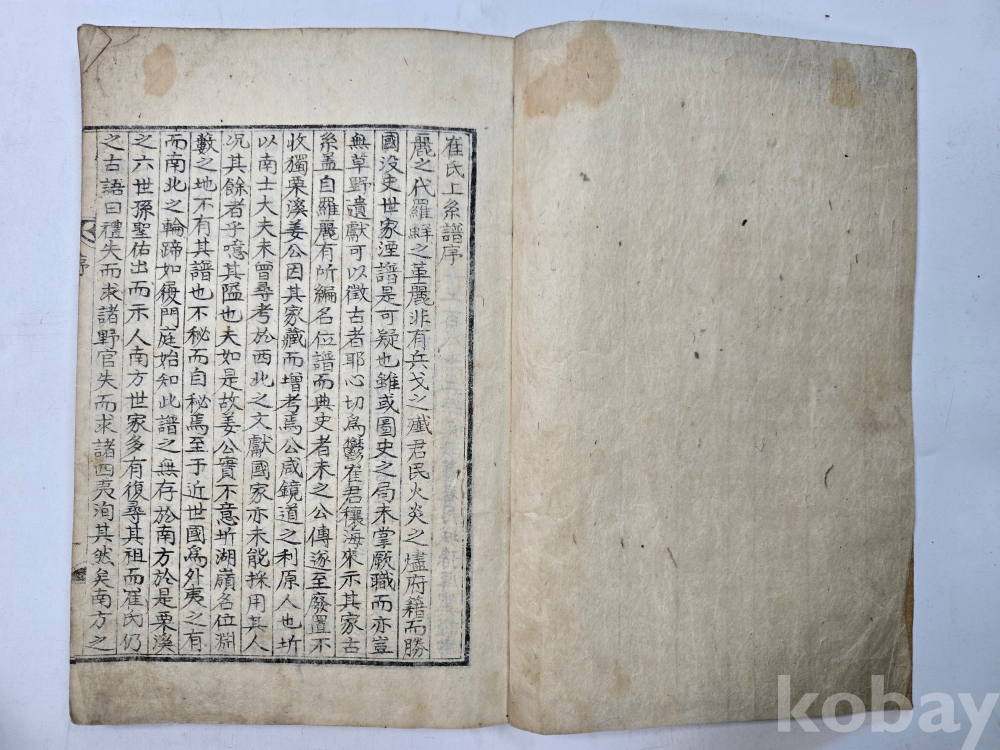 崔氏上系譜序
麗之代羅鮮之革麗非有兵戈之殲君民火炎之燼府籍而勝
國没史世家湮譜是可疑也雖或圖史之局未掌厥職而亦豈
無草野遺獻可以徵古者耶心切爲鬱崔君穰海來示其家古
系盖自羅麗有所編名位譜而典史者未之公傳遂至廢置不
收獨栗溪姜公因其家藏而增考焉公咸鏡道之利原人也圻
以南士大夫未曾尋考於西北之文獻國家亦未能採用其人
况其餘者乎噫其隘也夫如是故姜公實不意圻湖嶺各位淵
藪之地不有其譜也不秘而自秘焉至于近世國爲外夷之有
而南北之輪蹄如後門庭始知此譜之無存於南方於是栗溪
之六世孫聖佑出而示人南方世家多有復尋其祖而崔氏仍
之古語曰禮失而求諸野官失而求諸四夷洵其然矣南方之
序
kobay